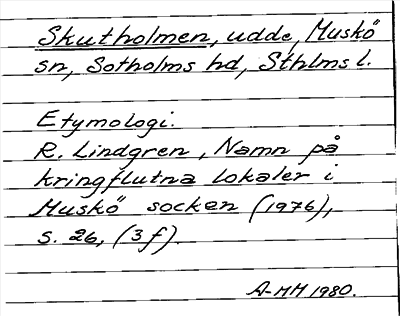 Skutholmen, udde, Muskö
sn, Sotholms hd, Sthlms l.
Etymologi.
R. Lindgren, Namn på
kringflutna lokaler i
Muskö socken (1976),
s. 26, (3f).
A-MM 1980.